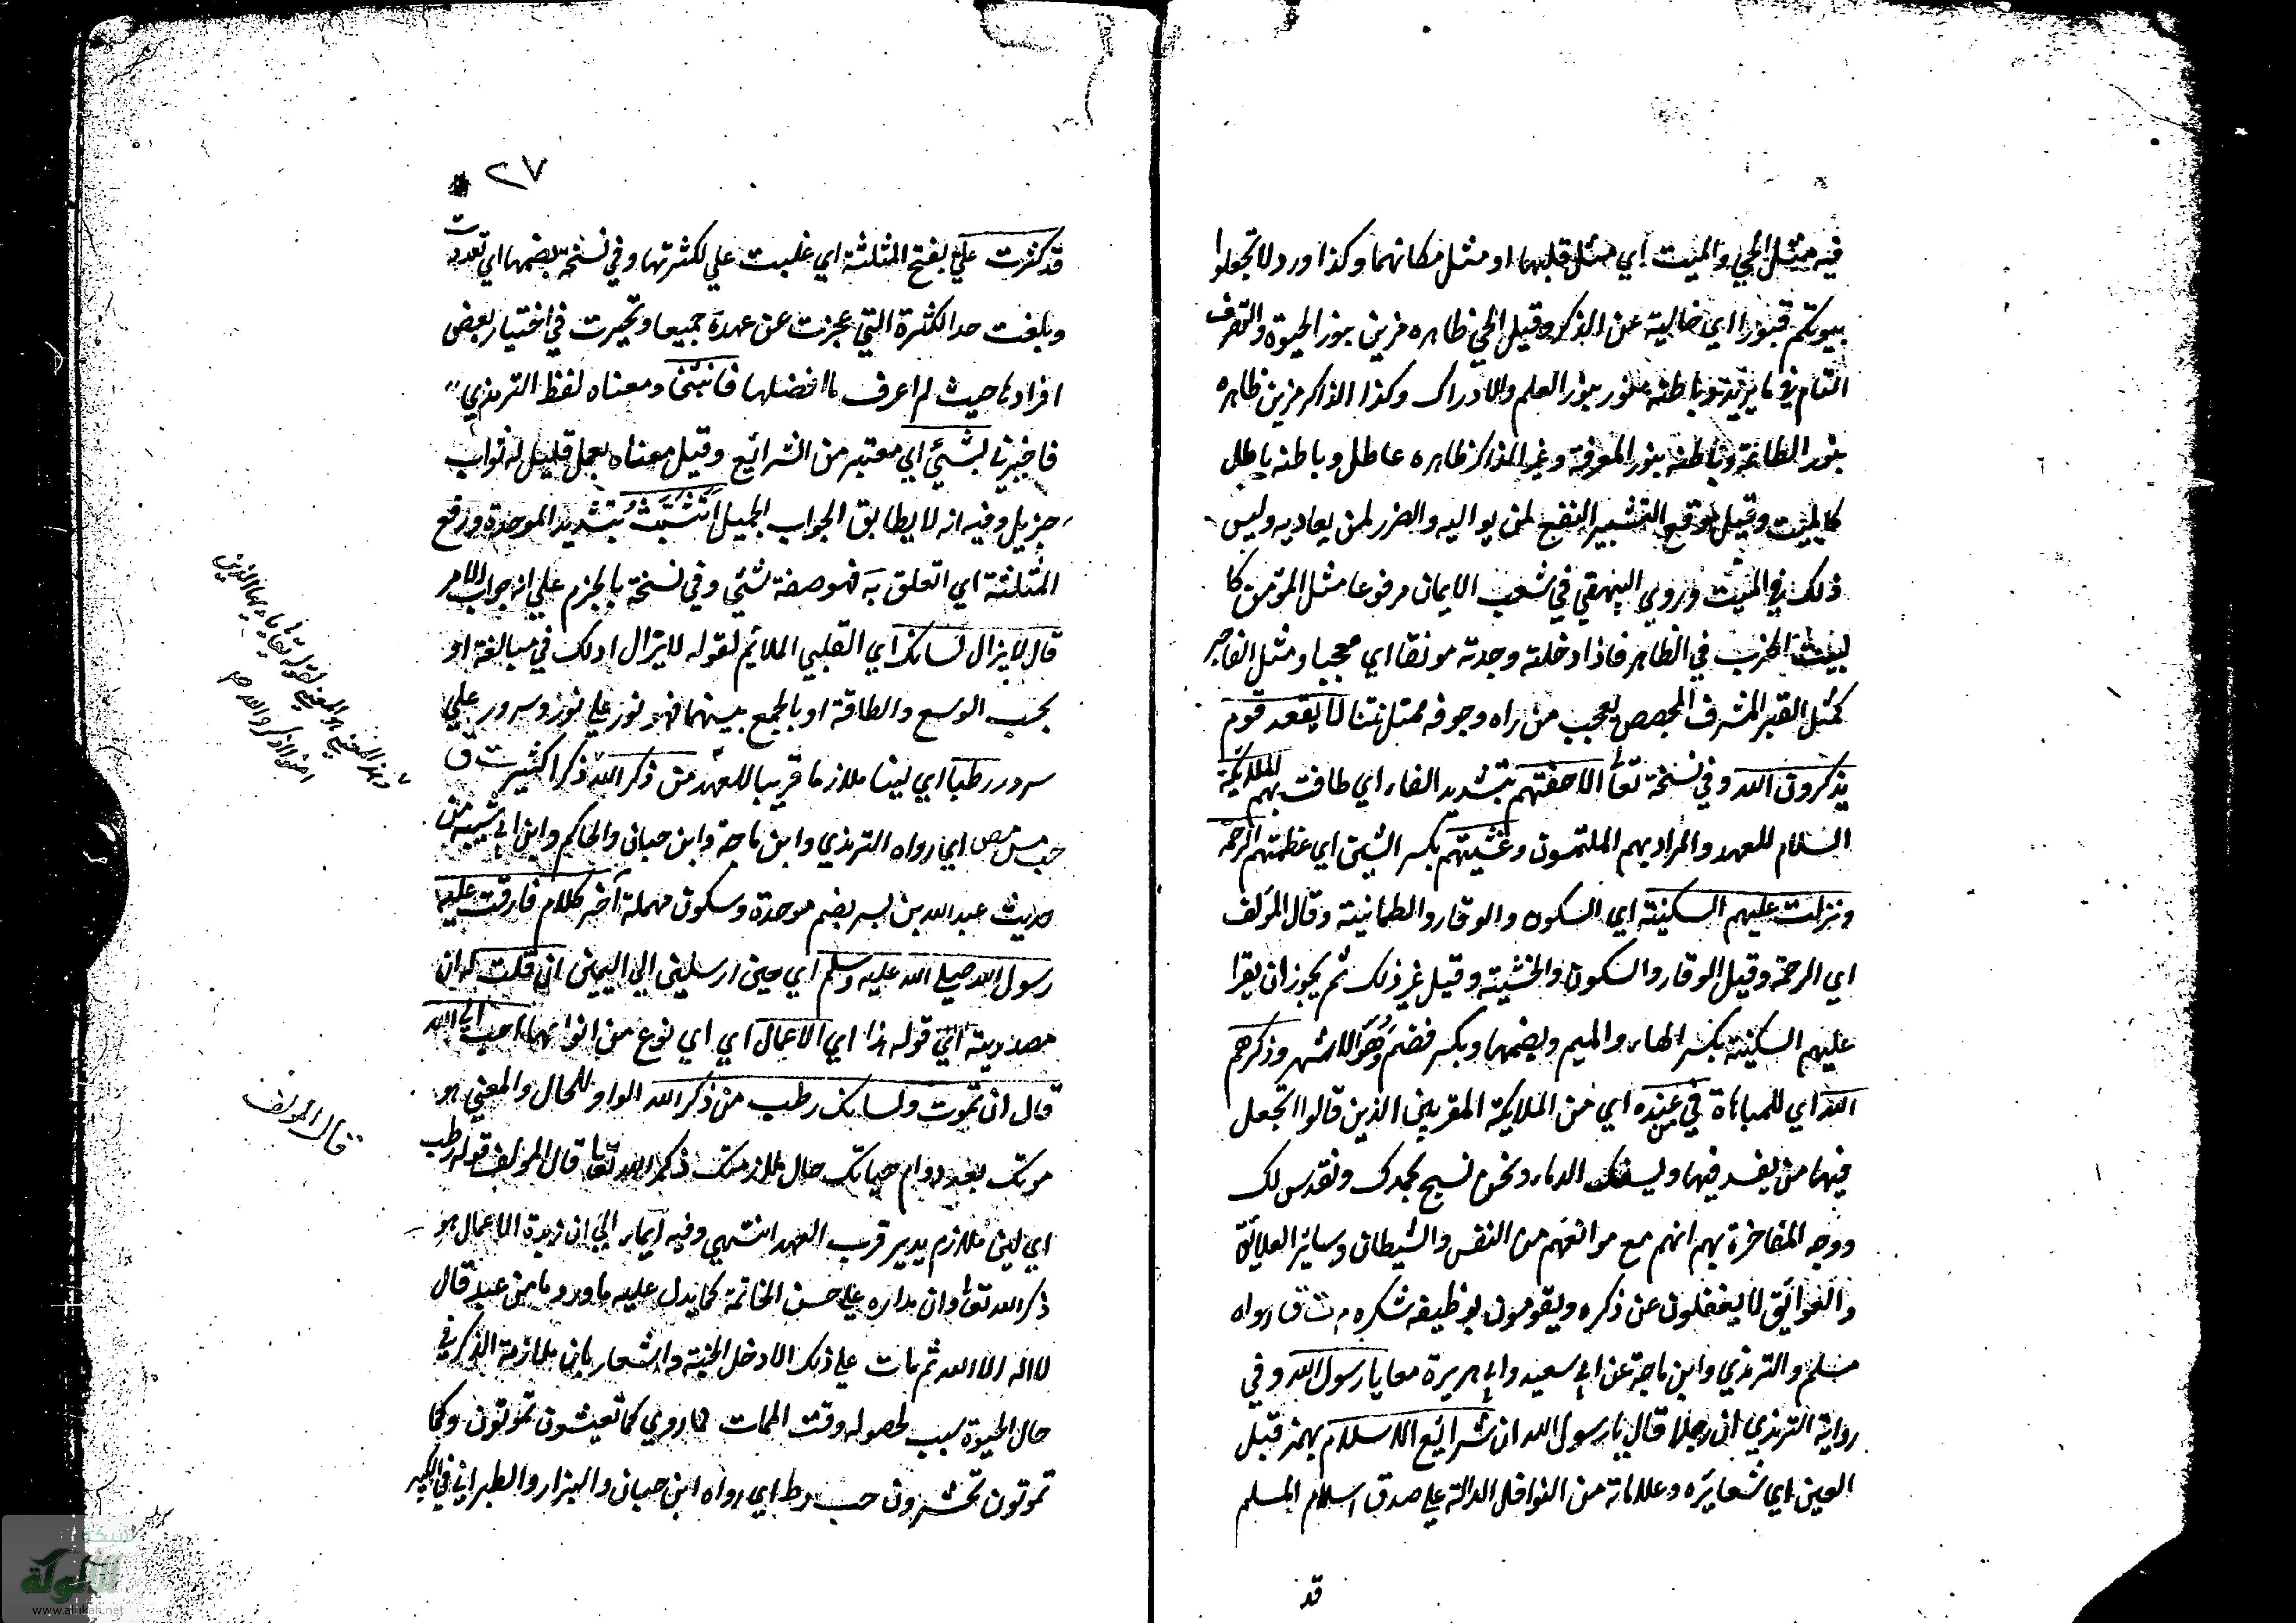 فيه مثل الحي والميت اي مثل قلبهما او مثل مكانهما وكذا ورد لا تجعلوا
بيوتكم قبورا اي خالية عن الذكر وقيل الحي ظاهره مزين بنور الحيوة والتصرف
التام فيما يريد وباطنه منور بنور العلم والادراك وكذا الذاكر مزين ظاهره
بنور الطاعة وباطنه بنور المعرفة وغير الذاكر ظاهره عاطل وباطنه باطل
كالميت وقيل موقع التشبيه النفع لمن يواليه والضرر لمن يعاديه وليس
ذلك في الميت وروي البيهقي في شعب الايمان مرفوعا مثل المؤمن كا
لبيت الخرب في الظاهر فاذا دخلته وجدته مونقا اي معجبا ومثل الفاجر
كمثل القبر المشرف المجصص يعجب من راه وجوفه ممتل نتنا لا يقعد قوم
يذكرون الله وفي نسخة تعالى الا حفتهم بتشديد الفاء اي طافت بهم الملايكة
السلام للعهد والمراد بهم الملتمسون وغشيتهم بكسر الشين اي غطتهم الرحمة
ونزلت عليهم السكينة اي السكون والوقار والطمانينة وقال المؤلف
اي الرحمة وقيل الوقار والسكون والخشية وقيل غير ذلك ثم يجوز ان يقرا
عليهم السكينة بكسر الهاء والميم وبضمهما وبكسر فضم وهو الاشهر وذكرهم
الله اي للمباهاة في من عنده اي من الملايكة المقربين الذين قالوا اتجعل
فيها من يفسد فيها ويسفك الدماء ونحن نسبح بحمدك ونقدس لك
ووجه المفاخرة بهم انهم مع موانعهم من النفس والشيطان وساير العلائق
والعوائق لا يغفلون عن ذكره ويقومون بوظيفة شكره م ت ق رواه
مسلم والترمذي وابن ماجة عن ابي سعيد وابي هريرة معا يا رسول الله وفي
رواية الترمذي ان رجلا قال يا رسول الله ان شرائع الاسلام بهمز قبل
العين اي شعائره وعلاماته من النوافل الدالة على صدق اسلام المسلم
قد
٢٧
قد كثرت علي بفتح المثلثة اي غلبت علي لكثرتها وفي نسخة بضمها اي تعددت
وبلغت حد الكثرة التي عجزت عن عهدة جميعا وتحيرت في اختيار بعض
افرادها حيث لم اعرف ما افضلها فانبئني ومعناه لفظ الترمذي
فاخبرني بشئ اي معتبر من الشرائع وقيل معناه بعمل قليل له ثواب
جزيل وفيه انه لا يطابق الجواب الجميل اتشبث بتشديد الموحدة ورفع
المثلثة اي اتعلق به فهو صفة شئي وفي نسخة بالجزم علي انه جواب الامر
قال لا يزال لسانك اي القلبي الملائم لقوله لا يزال او لك في مبالغة او
بحسب الوسع والطاقة او بالجمع بينهما فهو نور علي نور وسرور علي
سرور رطبا اي لينا ملازما قريبا للعهد من ذكر الله ذكرا كثيرا ت ق
حب مس مص اي رواه الترمذي وابن ماجة وابن حبان والحاكم وابن ابي شيبة من
حديث عبد الله بن بسر بضم موحدة وسكون مهملة آخر كلام فارقت عليه
رسول الله صلي الله عليه وسلم اي حين ارسلني الي اليمن ان قلت له ان
مصدرية اي قوله هذا اي الاعمال اي اي نوع من انواعها احب الي الله
قال ان تموت ولسانك رطب من ذكر الله الواو للحال والمعني هو
موتك بعد دوام حياتك حال ملازمتك ذكر الله تعالى قال المولف قوله رطب
اي لين ملازم يريد قرب العهد انتهي وفيه ايماء الي ان زبدة الاعمال هو
ذكر الله تعالى وان مداره علي حسن الخاتمة كما يدل عليه ما ورد ما من عبد قال
لا اله الا الله ثم مات علي ذلك الا دخل الجنة واشعار بان ملازمة الذكر في
حال الحيوة سبب لحصوله وقت الممات كما روي كما تعيشون تموتون وكما
تموتون تحشرون حب ر ط اي رواه ابن حبان والبزار والطبراني في الكبير
قال المولف
شبكة
الألوكة
www.alukah.net